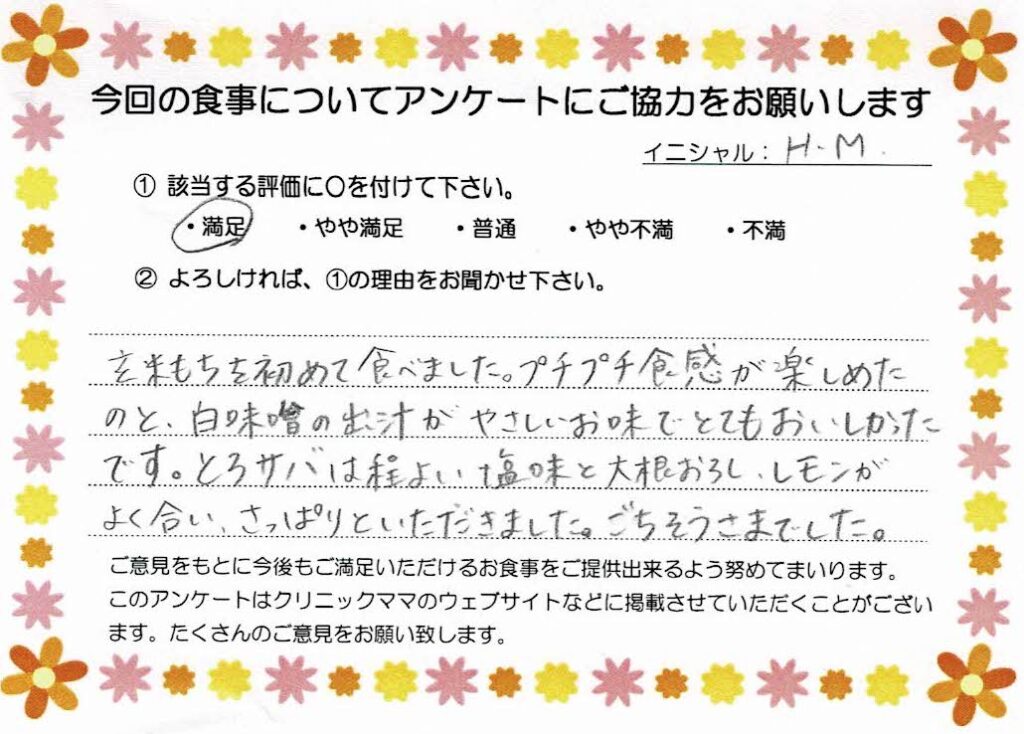 今回の食事についてアンケートにご協力をお願いします
イニシャル： H.M.
① 該当する評価に〇を付けて下さい。
・満足 ・やや満足 ・普通 ・やや不満 ・不満
② よろしければ、①の理由をお聞かせ下さい。
玄米もちを初めて食べました。プチプチ食感が楽しめた
のと、白味噌の出汁がやさしいお味でとてもおいしかった
です。とろサバは程よい塩味と大根おろし、レモンが
よく合い、さっぱりといただきました。ごちそうさまでした。
ご意見をもとに今後もご満足いただけるお食事をご提供出来るよう努めてまいります。
このアンケートはクリニックママのウェブサイトなどに掲載させていただくことがござい
ます。たくさんのご意見をお願い致します。